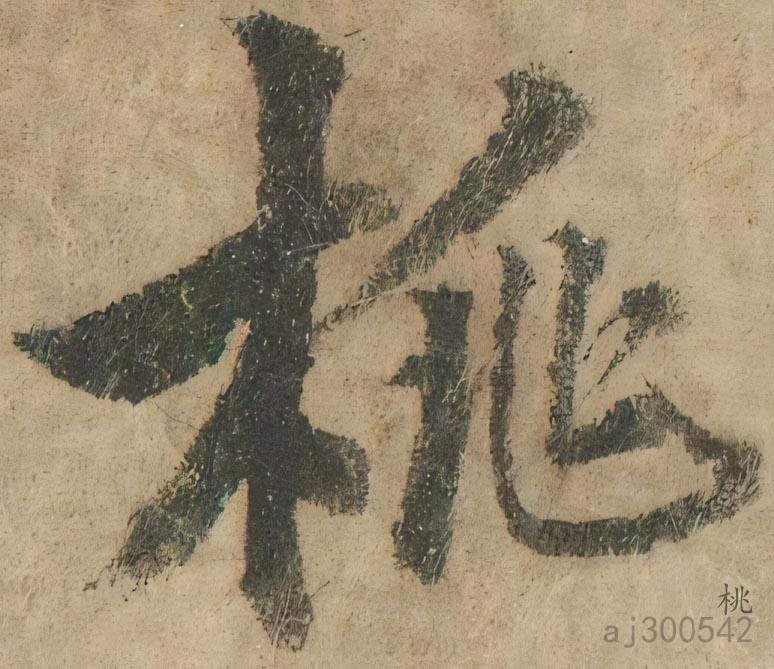 桃
桃
aj300542